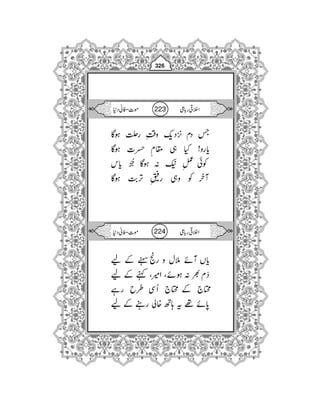 326
اخلاقی رباعی 223 موت-فانی دنیا
جس دم نزدیک وقتِ رحلت ہوگا
یارو! کیا ہی مقام حسرت ہوگا
کوئی عملِ نیک نہ ہوگا جُز یاس
آخر کو وہی رفیقِ تربت ہوگا
اخلاقی رباعی 224 موت-فانی دنیا
یاں آئے ملال و رنج سہنے کے لیے
دَم بھر نہ ہوئے، امیر، کہنے کے لیے
محتاج کے محتاج اُسی طرح رہے
پائے تھے یہ ہاتھ خالی رہنے کے لیے